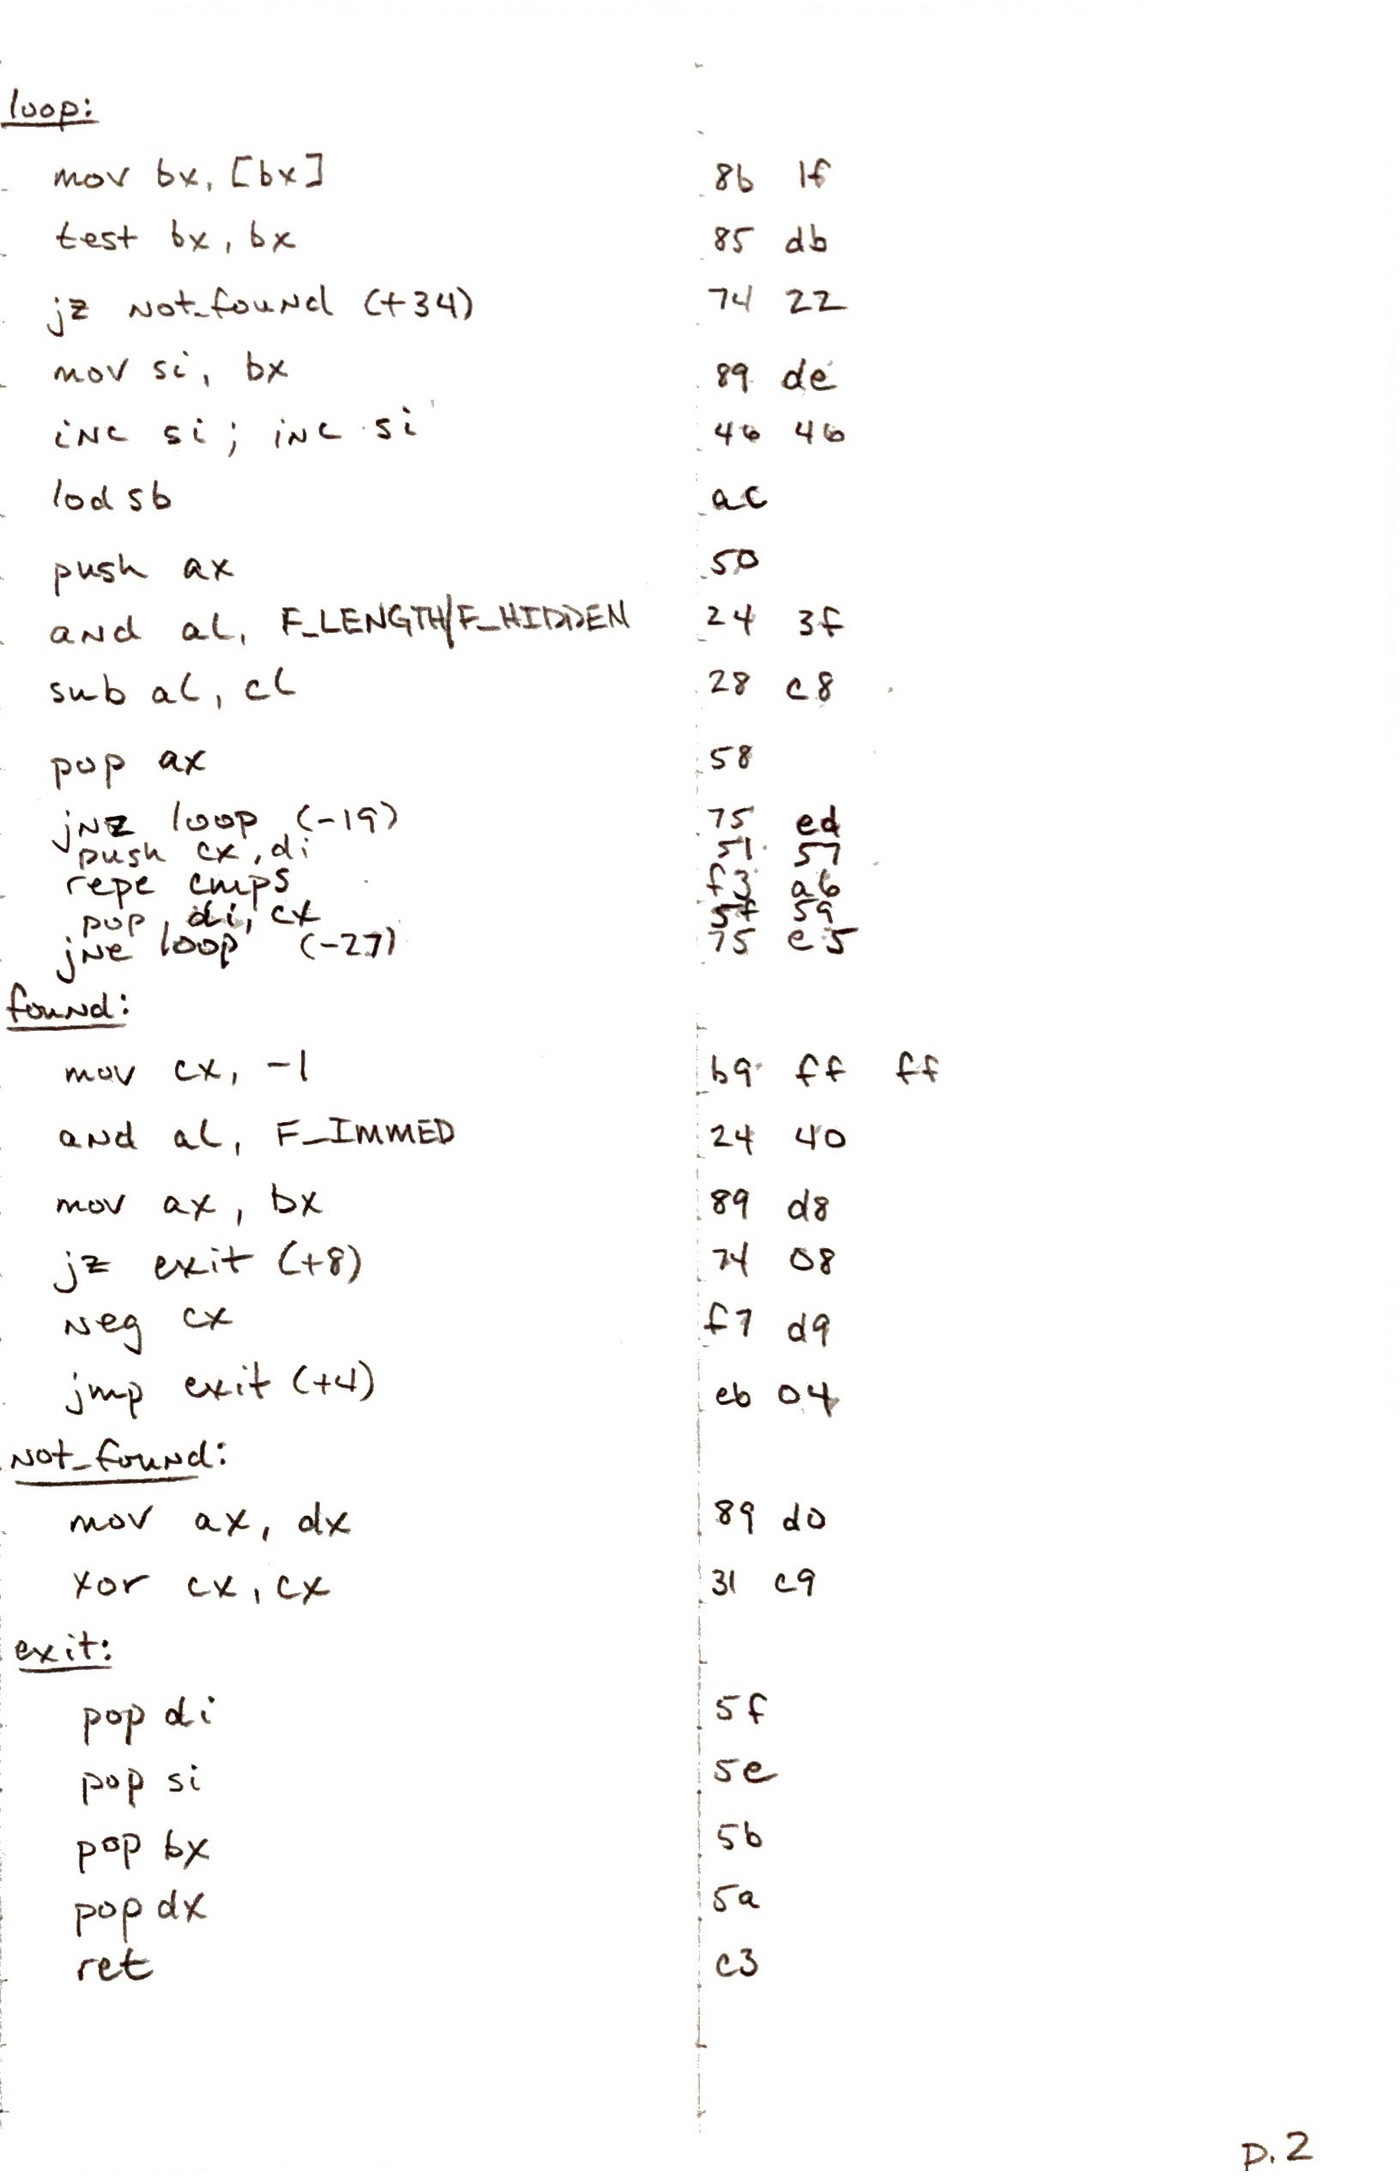 loop:
mov bx, [bx] 8b 1f
test bx, bx 85 db
jz not_found (+34) 74 22
mov si, bx 89 de
inc si; inc si 46 46
lodsb ac
push ax 50
and al, F_LENGTH|F_HIDDEN 24 3f
sub al, cl 28 c8
pop ax 58
jnz loop (-19) 75 ed
push cx, di 51 57
repe cmps f3 a6
pop di, cx 5f 59
jne loop (-27) 75 e5
found:
mov cx, -1 b9 ff ff
and al, F_IMMED 24 40
mov ax, bx 89 d8
jz exit (+8) 74 08
neg cx f7 d9
jmp exit (+4) eb 04
not_found:
mov ax, dx 89 d0
xor cx, cx 31 c9
exit:
pop di 5f
pop si 5e
pop bx 5b
pop dx 5a
ret c3
p.2